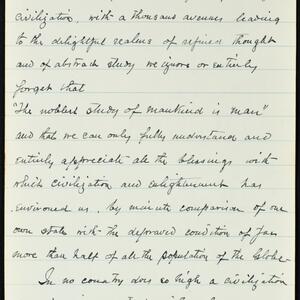 civilization, with a thousand avenues leading
to the delightful realms of refined thought
and of abstract study we ignore or entirely
forget that
"The noblest study of mankind is man"
and that we can only fully understand and
entirely appreciate all the blessings with
which civilization and enlightenment has
environed us, by minute comparison of our
own state with the depraved condition of far
more than half of all the population of the Globe.
In no country does so high a civilization